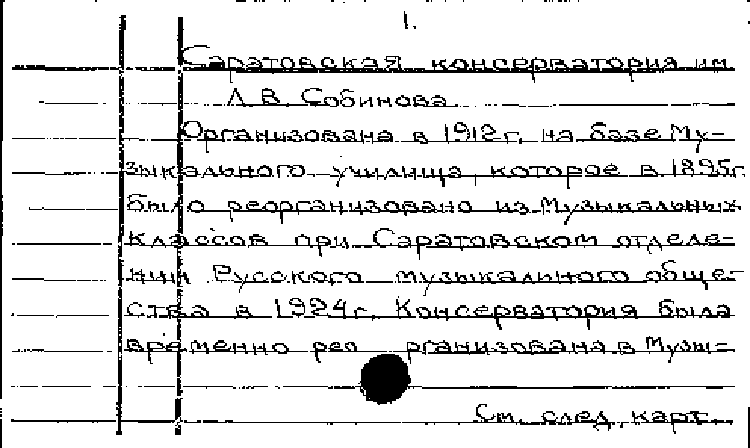 1.
Саратовская консерватория им
Л.В. Собинова
Организована в 1912г. на базе Му-
зыкального училища, которое в 1895г.
было реорганизовано из Музыкальных
классов при Саратовском отделе-
нии Русского музыкального обще-
ства в 1924г. Консерватория была
временно рео рганизована в Музы-
См. след. карт.